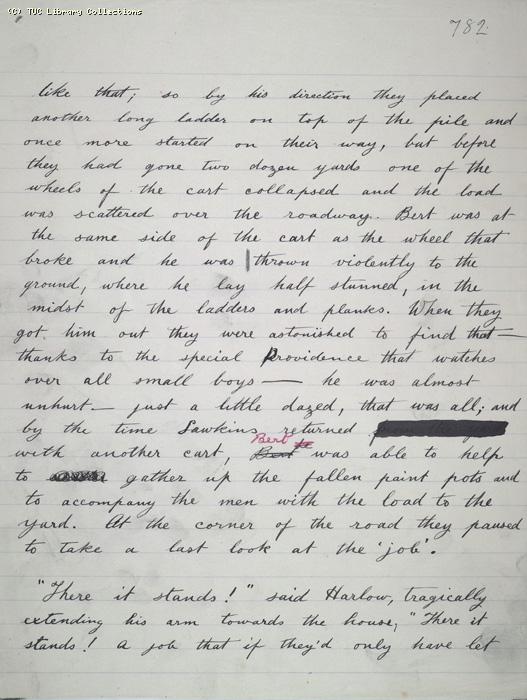 (C) TUC Library Collections
782
like that; so by his direction they placed
another long ladder on top of the pile and
once more started on their way, but before
they had gone two dozen yards one of the
wheels of the cart collapsed and the load
was scattered over the roadway. Bert was at
the same side of the cart as the wheel that
broke and he was thrown violently to the
ground, where he lay half stunned, in the
midst of the ladders and planks. When they
got him out they were astonished to find that—
thanks to the special Providence that watches
over all small boys — he was almost
unhurt — just a little dazed, that was all; and
by the time Sawkins returned
Bert
with another cart, Bert was able to help
to gather up the fallen paint pots and
to accompany the men with the load to the
yard. At the corner of the road they paused
to take a last look at the 'job'.
"There it stands!" said Harlow, tragically
extending his arm towards the house, "There it
stands! A job that if they'd only have let